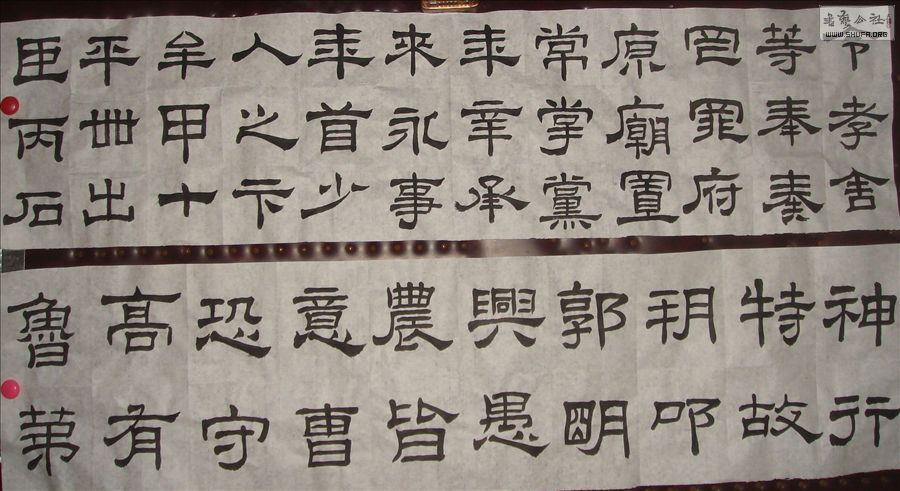 孝舍
等奉奏
罪府
原廟置
常掌黨
年辛承
來永事
年首少
人之下
牟甲十
平世出
臣丙石
神行
特故
叩
郭明
興愚
農皆
意曹
恐守
高有
魯第
书艺公社
WWW.SHUFA.ORG